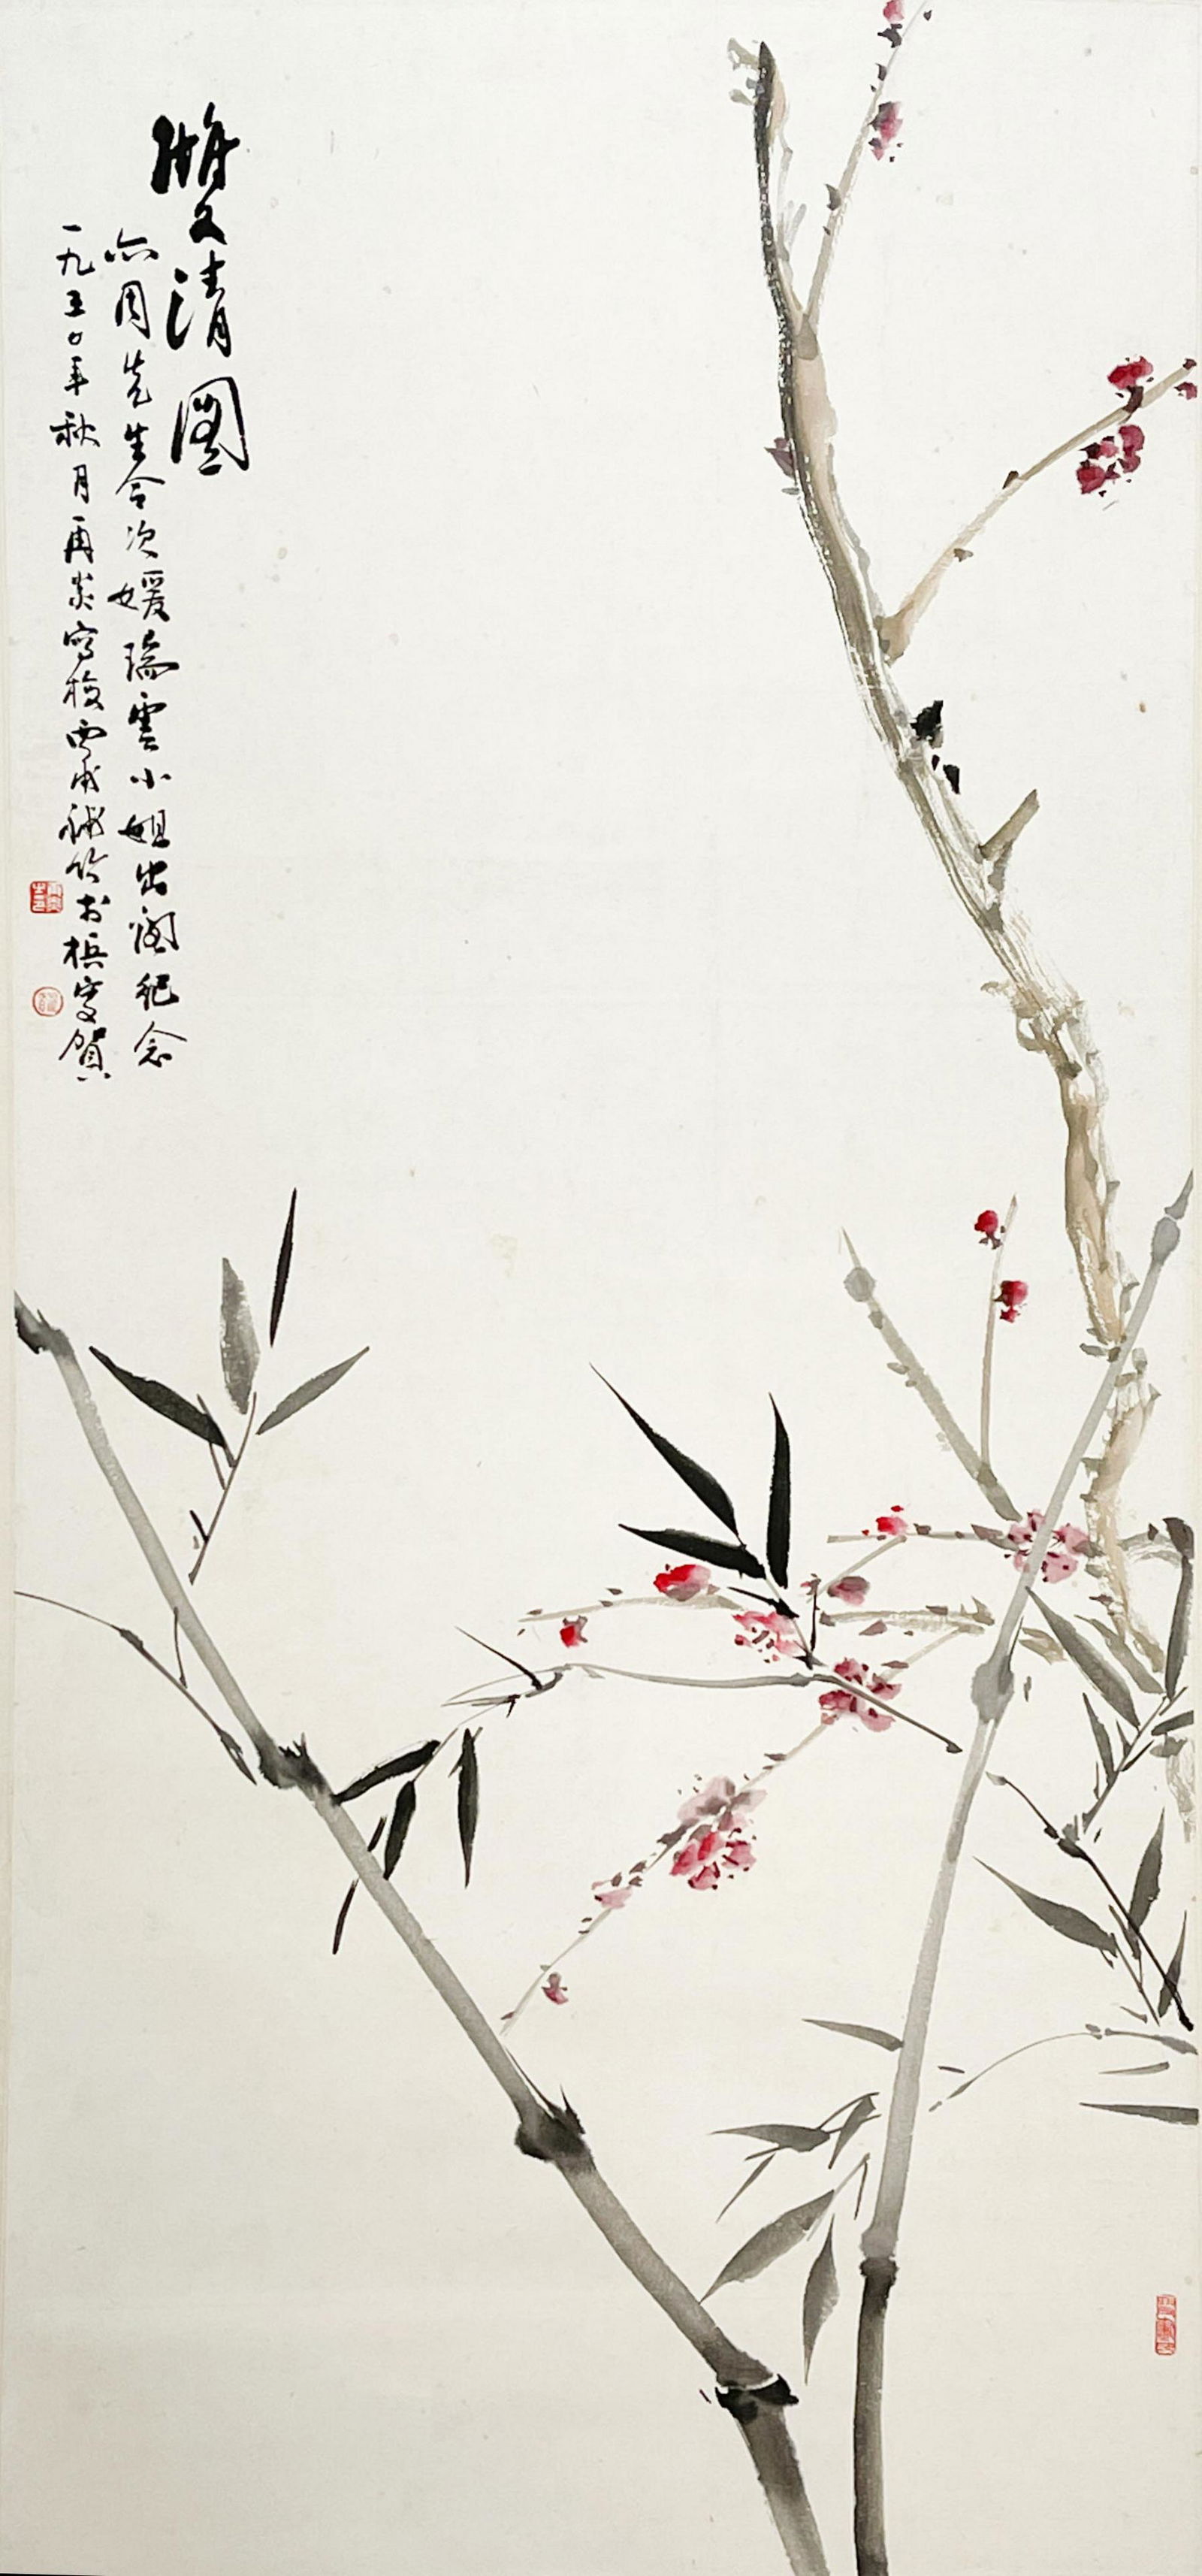 雙清圖
六周先生令次媛瑞雲小姐出閣紀念
一九五〇年秋月再炎寫梅西成補竹於檳安賀